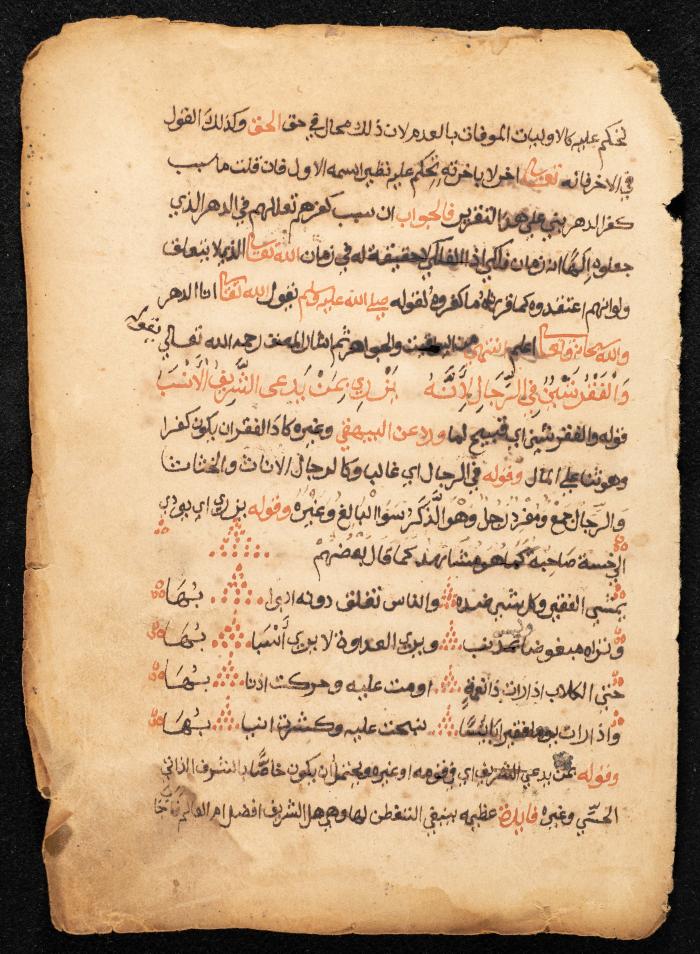 تحكم عليه كالاوليات الموقات بالعدم لان ذلك محال في حق الحق وكذلك القول
في الاخر فانه تعالى اخر لا باخرية تحكم عليه نظير اسمه الاول فان قلت ما سبب
كفر الدهر بني على هذا التقرير فالجواب ان سبب كفرهم تعاليهم في الدهر الذي
جعلوه الها انه زمان فلكي اذ الفلكي لا حقيقة له في زمان الله تعالى الذي لا يتعلق
ولو انهم اعتقدوه كما قررناه ما كفروا لقوله صلى الله عليه وسلم يقول الله تعالى انا الدهر
والله سبحانه وتعالى اعلم انتهى من اليواقيت والجواهر ثم اشار المصنف رحمه الله تعالى بقوله
وَالْفَقْرُ شَيْنٌ فِي الرِّجَالِ لِاَنَّهُ يُزْرِي بِمَنْ يُدْعَى الشَّرِيفَ الْاَنْسَبَ
قوله والفقر شين اي قبيح لما ورد عن البيهقي وغيره كاد الفقر ان يكون كفرا
وهو ثنا على المال وقوله في الرجال اي غالب وكالرجال الاناث والخناث
والرجال جمع ومفرد رجل وهو الذكر سوا البالغ وغيره وقوله يزري اي يودي
الى خسة صاحبه كما هو مشاهد كما قال بعضهم
يمشي الفقير وكل شي ضده والناس تغلق دونه ابوابها
وتراه مبغوضا وليس بمذنب ويرى العداوة لا يرى أسبابها
حتى الكلاب اذا رات ذا نعمة اومت عليه وحركت اذنابها
واذا رات يوما فقيرا بائسا نبحت عليه وكشرت انيابها
وقوله بمن يدعي الشريف اي في قومه او غيره ويحتمل ان يكون خاصا بالشرف الذاتي
الحسي وغيره فايدة عظيمة ينبغي التفطن لها وهي هل الشريف افضل ام العالم